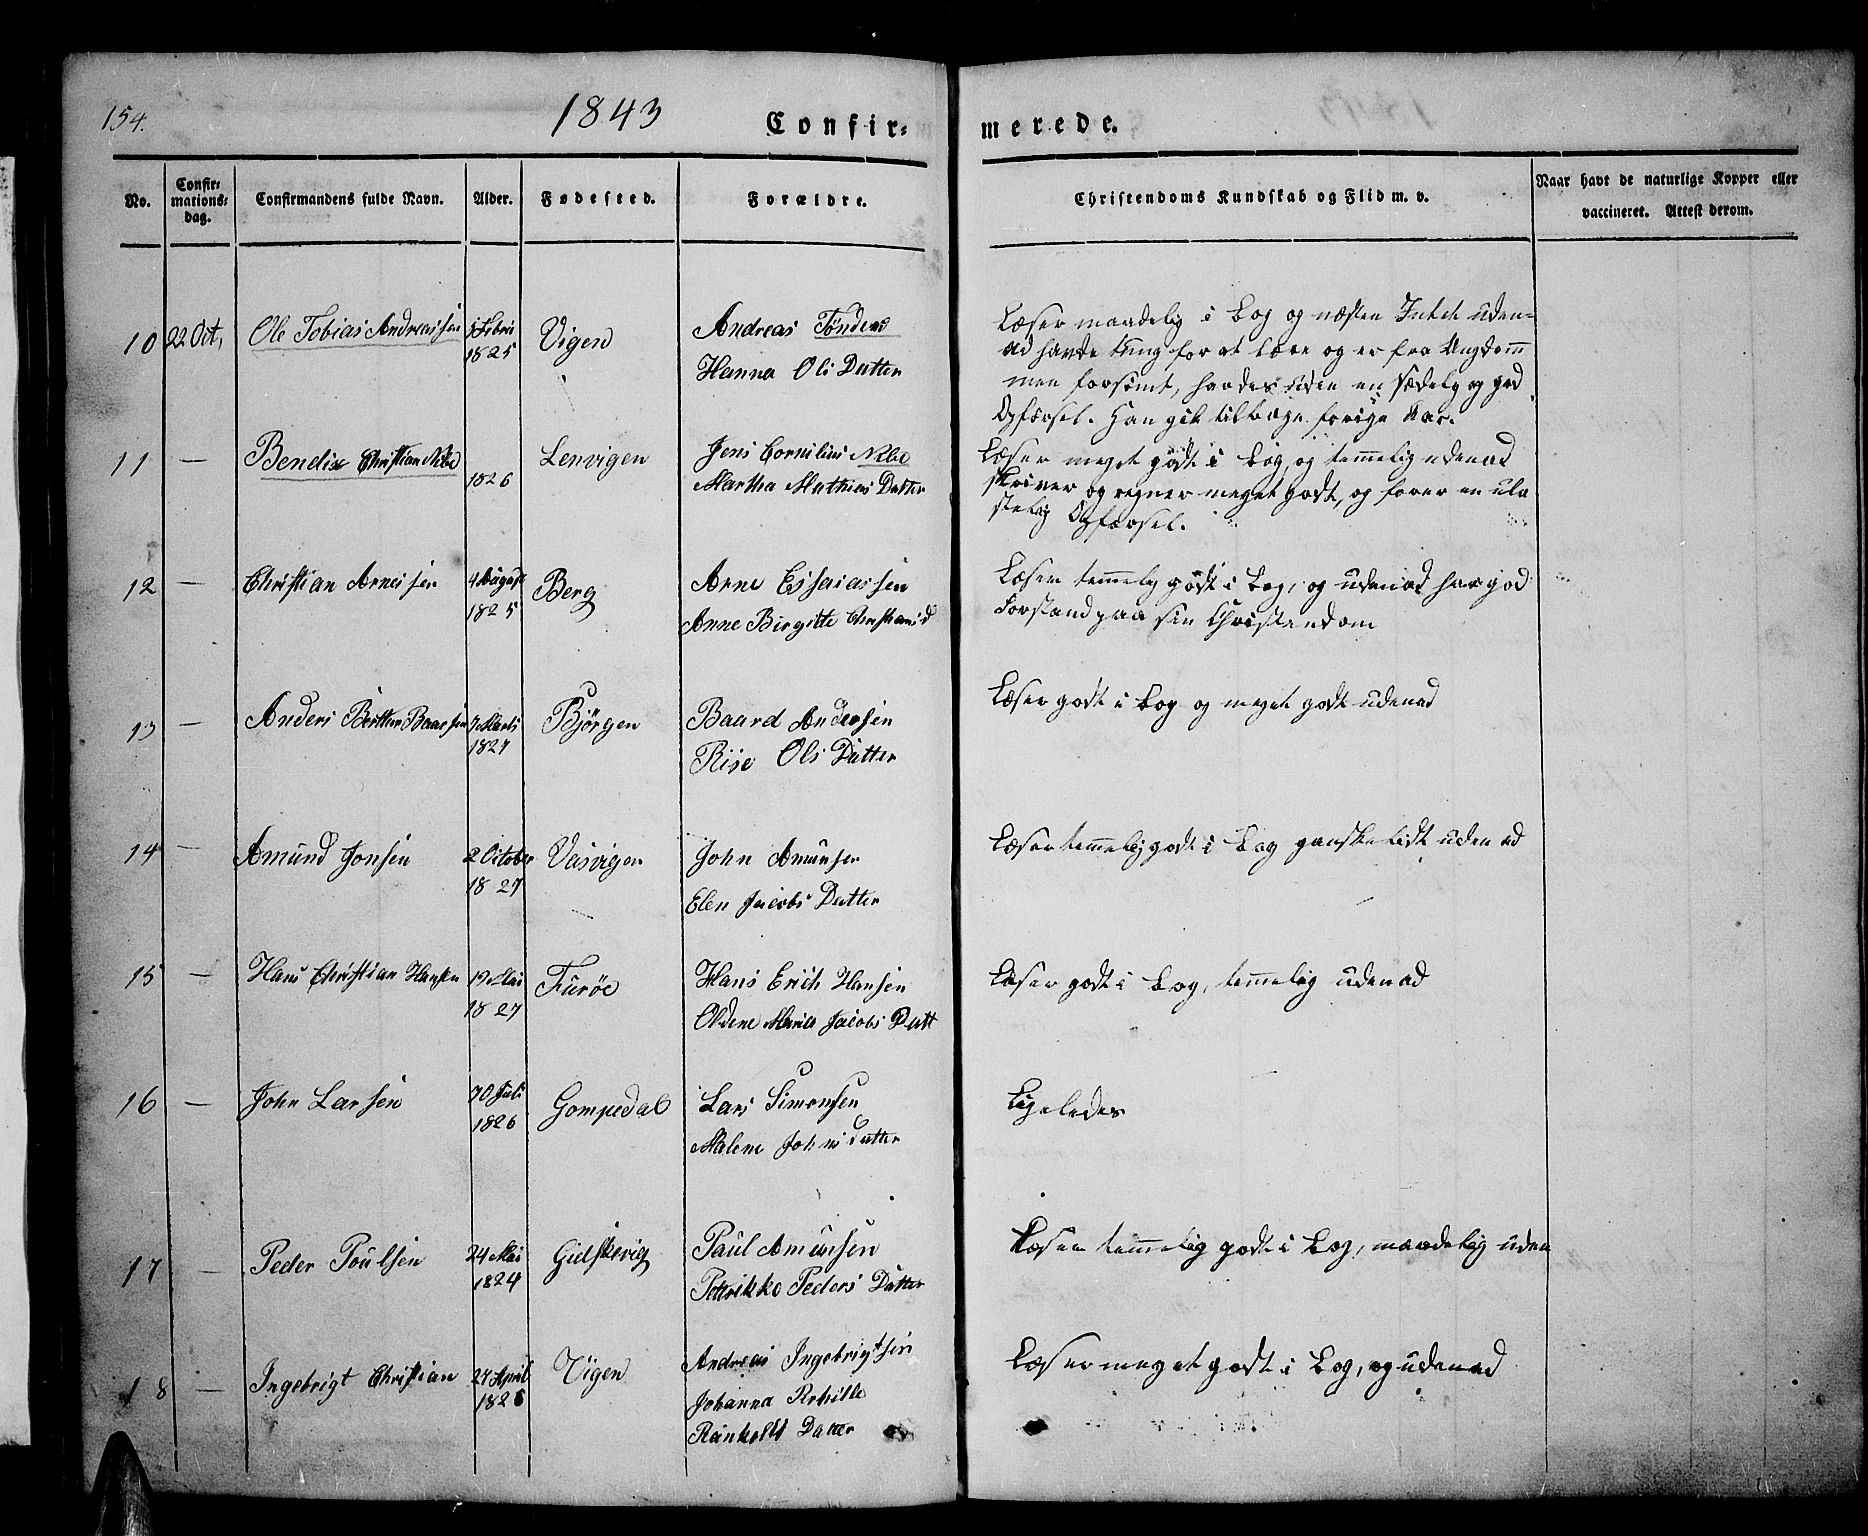 154.
1843
Confir=
merede.
No.
Confir=
mations=
dag.
Confirmandens fulde Navn.
Alder.
Fødested.
Forældre.
Christendoms Kundskab og Flid m. v.
Naar havt de naturlige Kopper eller
vaccineret. Attest derom.
10 22 Oct, Ole Tobias Andreassen
1825
Vigen
Andreas Tönder
Hanna Ols Datter
Læser maadelig i Bog og næsten Intet uden=
ad havde tung for at lære og er fra Ungdom
men forsömt, en sædelig og god
Opførsel. Han gik tilbage forige Aar.
11 — Bendix Christian
1826
Lenvigen
Jens Cornelius
Martha Mathias Datter
Læser meget godt i Bog, og temmelig udenad
skriver og regner meget godt, og fører en ula
stelig Opførsel.
12 — Christian Arnessen
4 August
1825
Berg
Arne Esaiassen
Anne Birgitte Christians d
Læser temmelig godt i Bog, og udenad har god
Forstand paa sin Christendom
13 — Anders Baarsen
7 Marts
1827
Björgen
Baard Andersen
Ols Datter
Læser godt i Bog og meget godt udenad
14 — Amund Jonsen
2 October
1827
Vasvigen
John Amunsen
Elen Jacobs Datter
Læser temmelig godt i Bog ganske lidt uden ad
15 — Hans Christian Hansen
Mai
1827
Furöe
Hans Erich Hansen
Oldine Maria Jacobs Datt
Læser godt i Bog, temmelig udenad
16 — John Larsen
Juli
1826
Gompedal
Lars Simonsen
Malene Johns Datter
Ligeledes
17 — Peder Poulsen
24 Mai
1824
Gidskevig
Paul Amunsen
Petrikke Peders Datter
Læser temmelig godt i Bog, maadelig uden
18 — Ingebrigt Christian
24 April
1826
Vigen
Andreas Ingebrigtsen
Johanna
Reinholdt Datter
Læser meget godt i Bog, og udenad